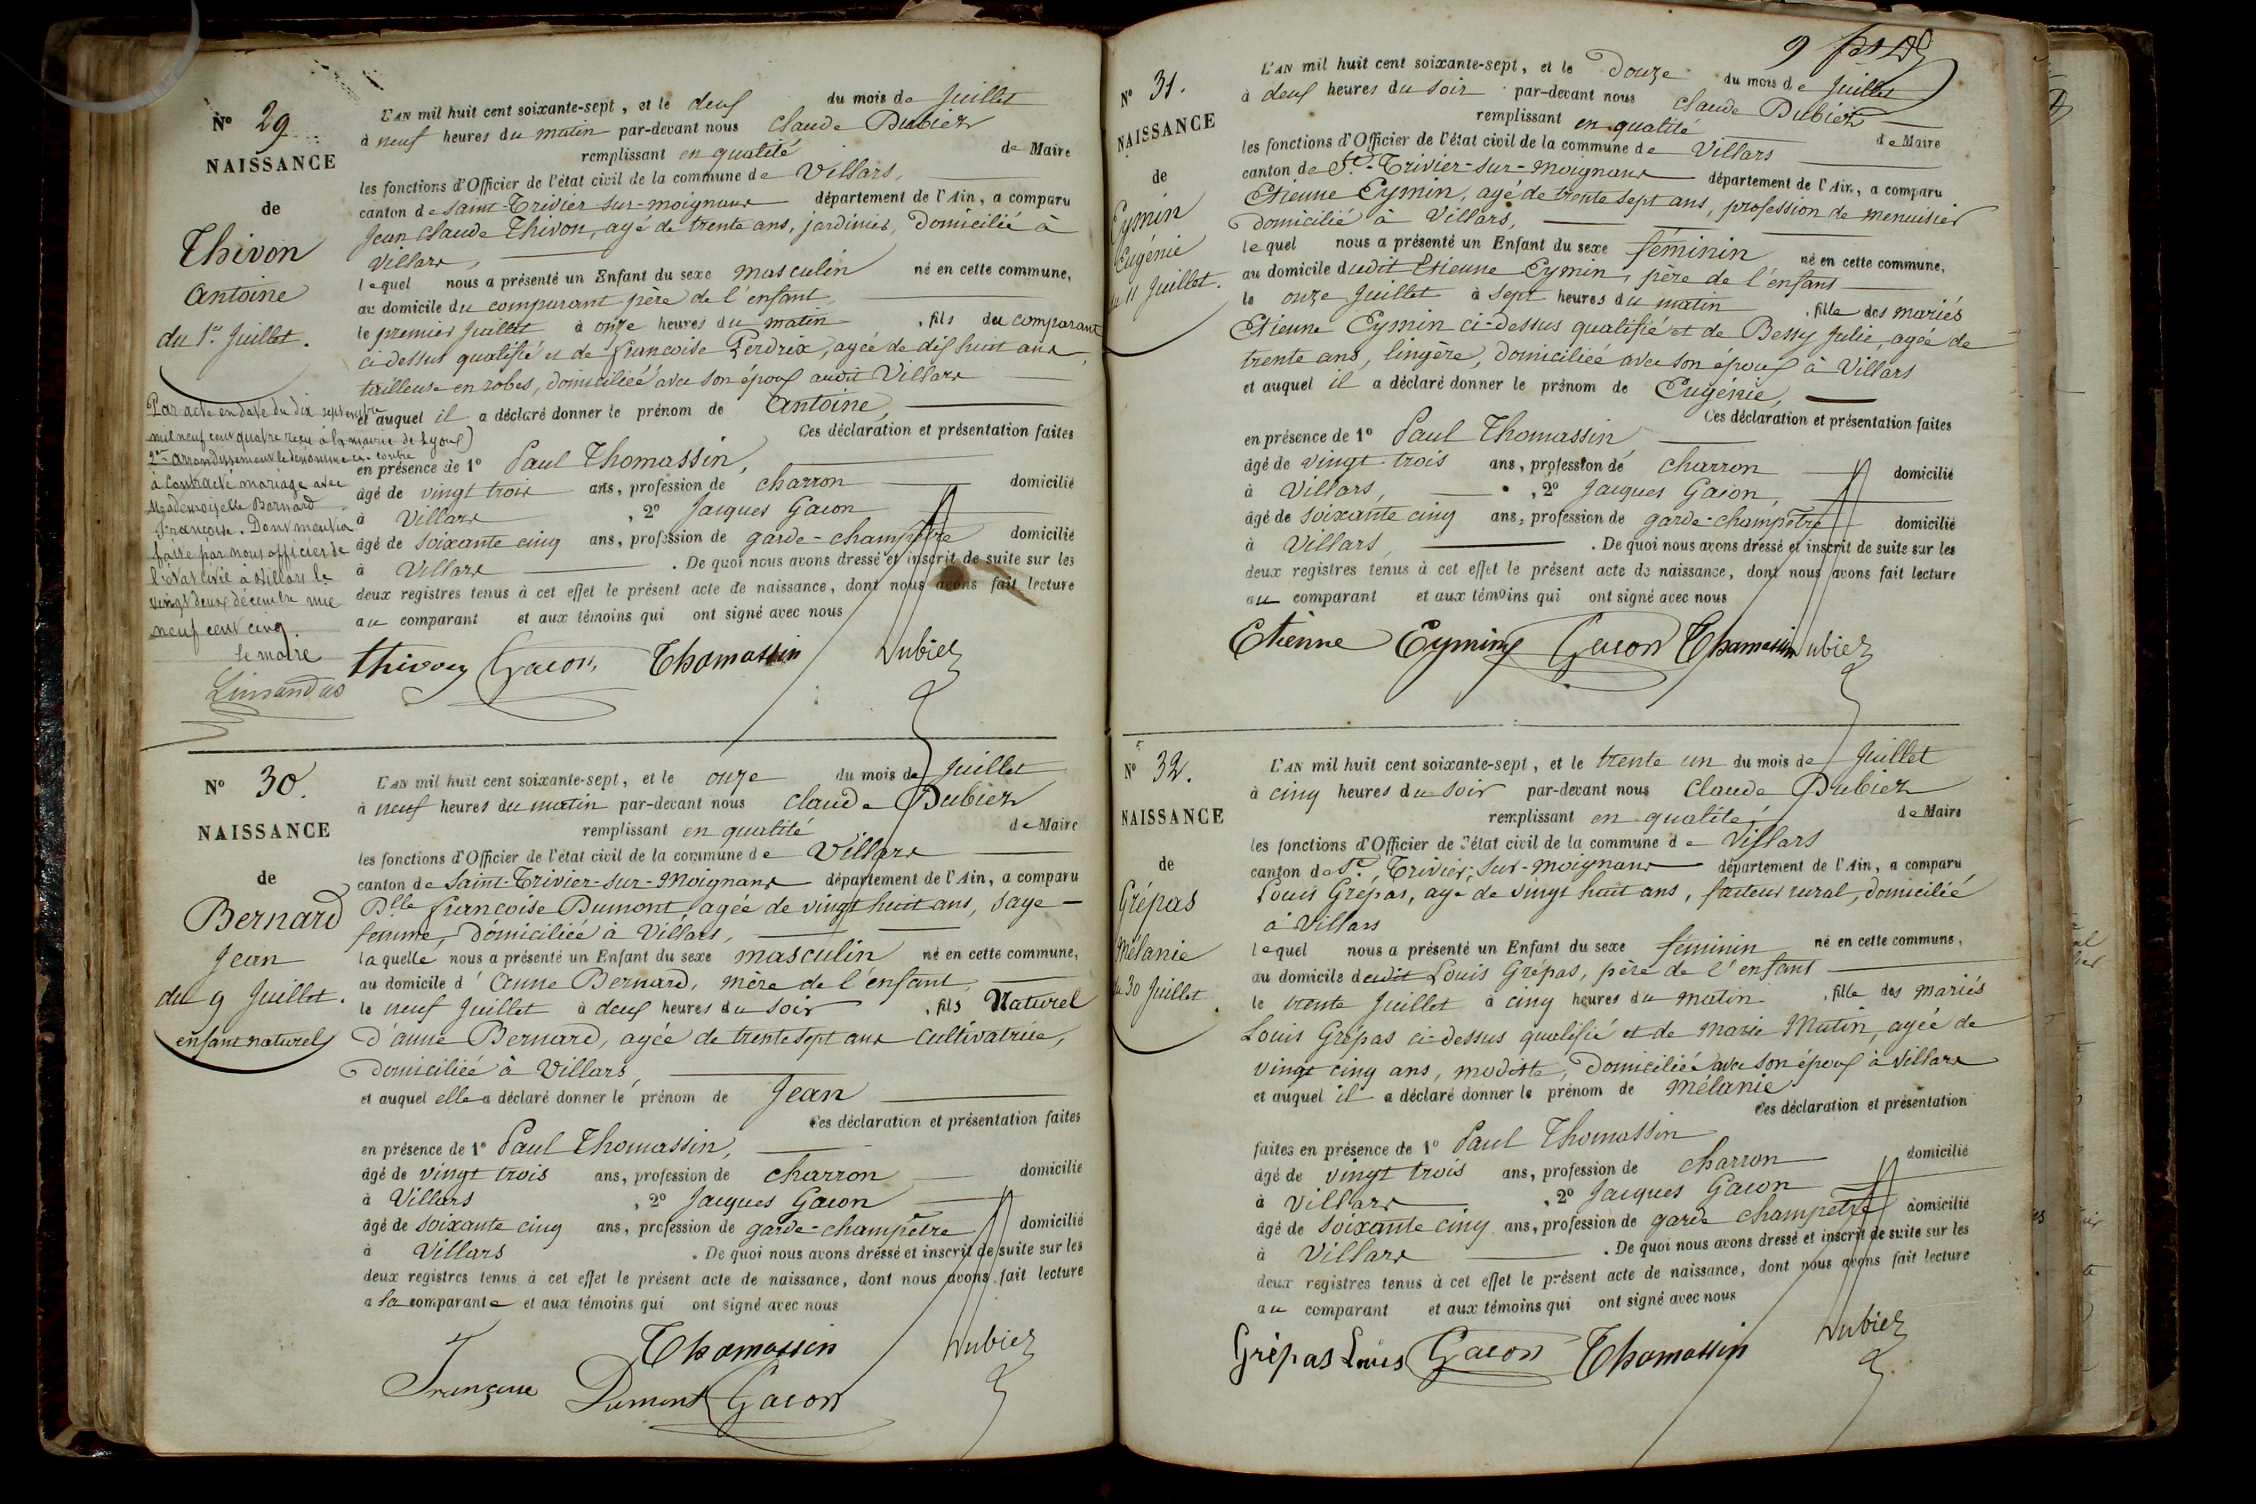 Nº 29
NAISSANCE
de
Thivon
Antoine
du 1er Juillet.
Par acte en date du dix septembre
mil neuf cent quatre reçu à la mairie de Lyon
2me arrondissement le dénommé ci-contre
à contracté mariage avec
Mademoiselle Bernard
Françoise. Dont mention
faite par nous officier de
l'état civil à Villars le
vingt deux décembre mil
neuf cent cinq.
Le maire
L'AN mil huit cent soixante-sept, et le deux du mois de Juillet
à neuf heures du matin par-devant nous Claude Dubiez
remplissant en qualité de Maire
les fonctions d'Officier de l'état civil de la commune de Villars,
canton de Saint-Trivier-sur-moignans département de l'Ain, a comparu
Jean Claude Thivon, agé de trente ans, jardinier, domicilié à
Villars,
lequel nous a présenté un Enfant du sexe masculin né en cette commune,
au domicile du comparant père de l'enfant,
le premier Juillet à onze heures du matin, fils du comparant
ci-dessus qualifié et de françoise Perdrix, agée de dix huit ans,
tailleuse en robes, domiciliéé avec son époux audit Villars
et auquel il a déclaré donner le prénom de Antoine,
Ces déclaration et présentation faites
en présence de 1º Paul Thomassin,
âgé de vingt trois ans, profession de charron domicilié
à Villars, 2º Jacques Gacon
âgé de soixante cinq ans, profession de garde-champêtre domicilié
à Villars. De quoi nous avons dressé et inscrit de suite sur les
deux registres tenus à cet effet le présent acte de naissance, dont nous avons fait lecture
au comparant et aux témoins qui ont signé avec nous
Thivon Gacon Thomassin Dubiez
Nº 30.
NAISSANCE
de
Bernard
Jean
du 9 Juillet.
enfant naturel
L'AN mil huit cent soixante-sept, et le onze du mois de Juillet
à neuf heures du matin par-devant nous Claude Dubiez
remplissant en qualité de Maire
les fonctions d'Officier de l'état civil de la commune de Villars
canton de Saint-Trivier-sur-Moignans département de l'Ain, a comparu
Dlle françoise Dumont, agée de vingt huit ans, sage-
femme, domiciliée à Villars,
laquelle nous a présenté un Enfant du sexe masculin né en cette commune,
au domicile d'Anne Bernard, mère de l'enfant,
le neuf Juillet à deux heures du soir, fils Naturel
d'anne Bernard, agée de trente sept ans cultivatrice,
domiciliéé à Villars,
et auquel elle a déclaré donner le prénom de Jean
Ces déclaration et présentation faites
en présence de 1º Paul Thomassin,
âgé de vingt trois ans, profession de charron domicilié
à Villars, 2º Jacques Gacon
âgé de soixante cinq ans, profession de garde-champêtre domicilié
à Villars. De quoi nous avons dressé et inscrit de suite sur les
deux registres tenus à cet effet le présent acte de naissance, dont nous avons fait lecture
a la comparante et aux témoins qui ont signé avec nous
Thomassin Dubiez
Françoise Dumont Gacon
9
Nº 31.
NAISSANCE
de
Eymin
Eugénie
du 11 Juillet.
L'AN mil huit cent soixante-sept, et le Douze du mois de Juillet
à deux heures du soir par-devant nous Claude Dubiez
remplissant en qualité de Maire
les fonctions d'Officier de l'état civil de la commune de Villars
canton de St-Trivier-sur-moignans département de l'Ain, a comparu
Etienne Eymin, agé de trente sept ans, profession de menuisier
domicilié à Villars,
lequel nous a présenté un Enfant du sexe féminin né en cette commune,
au domicile dudit Etienne Eymin, père de l'enfant
le onze Juillet à sept heures du matin, fille des mariés
Etienne Eymin ci-dessus qualifié et de Bessy Julie, agée de
trente ans, lingère, domiciliéé avec son époux à Villars
et auquel il a déclaré donner le prénom de Eugénie,
Ces déclaration et présentation faites
en présence de 1º Paul Thomassin
âgé de vingt trois ans, profession de charron domicilié
à Villars, 2º Jacques Gacon,
âgé de soixante cinq ans, profession de garde-champêtre domicilié
à Villars,. De quoi nous avons dressé et inscrit de suite sur les
deux registres tenus à cet effet le présent acte de naissance, dont nous avons fait lecture
au comparant et aux témoins qui ont signé avec nous
Etienne Eymin Gacon Thomassin Dubiez
Nº 32.
NAISSANCE
de
Grépas
Mélanie
du 30 Juillet.
L'AN mil huit cent soixante-sept, et le trente un du mois de Juillet
à cinq heures du soir par-devant nous Claude Dubiez
remplissant en qualité de Maire
les fonctions d'Officier de l'état civil de la commune de Villars
canton de St. Trivier-sur-moignans département de l'Ain, a comparu
Louis Grépas, age de vingt huit ans, facteur rural, domicilié
à Villars
lequel nous a présenté un Enfant du sexe féminin né en cette commune,
au domicile dudit Louis Grépas, père de l'enfant
le trente Juillet à cinq heures du matin, fille des mariés
Louis Grépas ci-dessus qualifié et de Marie Mutin, agée de
vingt cinq ans, modiste, domiciliéé avec son époux à Villars
et auquel il a déclaré donner le prénom de Mélanie
Ces déclaration et présentation
faites en présence de 1º Paul Thomassin
âgé de vingt trois ans, profession de charron domicilié
à Villars, 2º Jacques Gacon
âgé de soixante cinq ans, profession de garde champêtre domicilié
à Villars. De quoi nous avons dressé et inscrit de suite sur les
deux registres tenus à cet effet le présent acte de naissance, dont nous avons fait lecture
au comparant et aux témoins qui ont signé avec nous
Grépas Louis Gacon Thomassin Dubiez